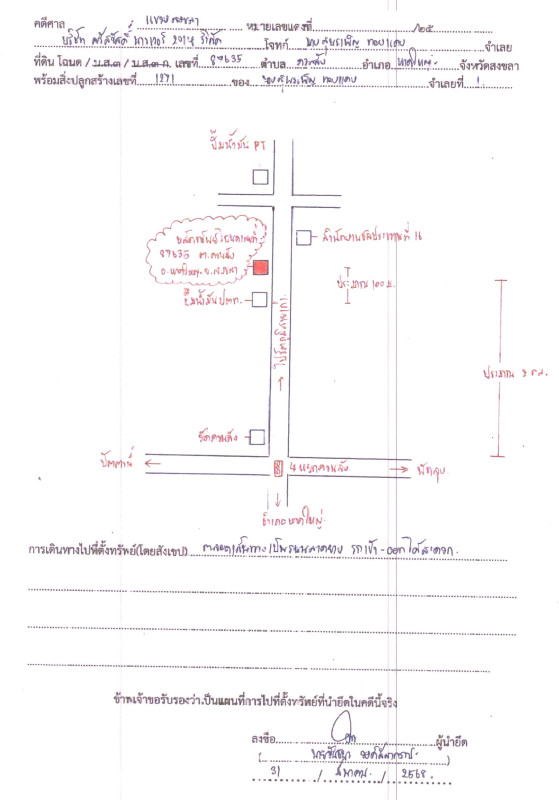 คดีศาล แขวงสงขลา หมายเลขแดงที่ /๒๕
บริษัท ศรีสวัสดิ์ พาวเวอร์ 2014 จำกัด โจทก์ ทองแดง จำเลย
ที่ดิน โฉนด / น.ส.๓ / น.ส.๓ ก. เลขที่ 87635 ตำบล ควนลัง อำเภอ หาดใหญ่ จังหวัดสงขลา
พร้อมสิ่งปลูกสร้างเลขที่ 1271 ของ ทองแดง จำเลยที่ 1
ปั๊มน้ำมัน PT
สำนักงานชลประทานที่ 16
87635 ต.ควนลัง
อ.หาดใหญ่ จ.สงขลา
ปั๊มน้ำมัน ปตท.
ประมาณ 100 ม.
ประมาณ
วัดควนลัง
ปัตตานี
4 แยกควนลัง
พัทลุง
อำเภอหาดใหญ่
การเดินทางไปที่ตั้งทรัพย์(โดยสังเขป) ตลอดเส้นทางเป็นถนนลาดยาง รถเข้า-ออกได้สะดวก
ข้าพเจ้าขอรับรองว่า,เป็นแผนที่การไปที่ตั้งทรัพย์ที่นำยึดในคดีนี้จริง
ลงชื่อ ผู้นำยึด
31 / มีนาคม / 2568